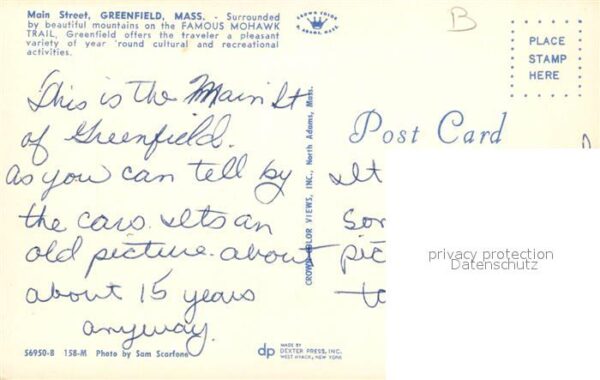 Main Street, GREENFIELD, MASS. - Surrounded
by beautiful mountains on the FAMOUS MOHAWK
TRAIL, Greenfield offers the traveler a pleasant
variety of year 'round cultural and recreational
activities.
B
PLACE
STAMP
HERE
This is the Main St
of Greenfield.
As you can tell by
the cars. Its an
old picture. about
about 15 years
anyway.
CROWN COLOR VIEWS, INC., North Adams, Mass.
Post Card
It
Sor
pic
to
privacy protection
Datenschutz
56950-B 158-M Photo by Sam Scarfone
dp MADE BY
DEXTER PRESS, INC.
WEST NYACK, NEW YORK